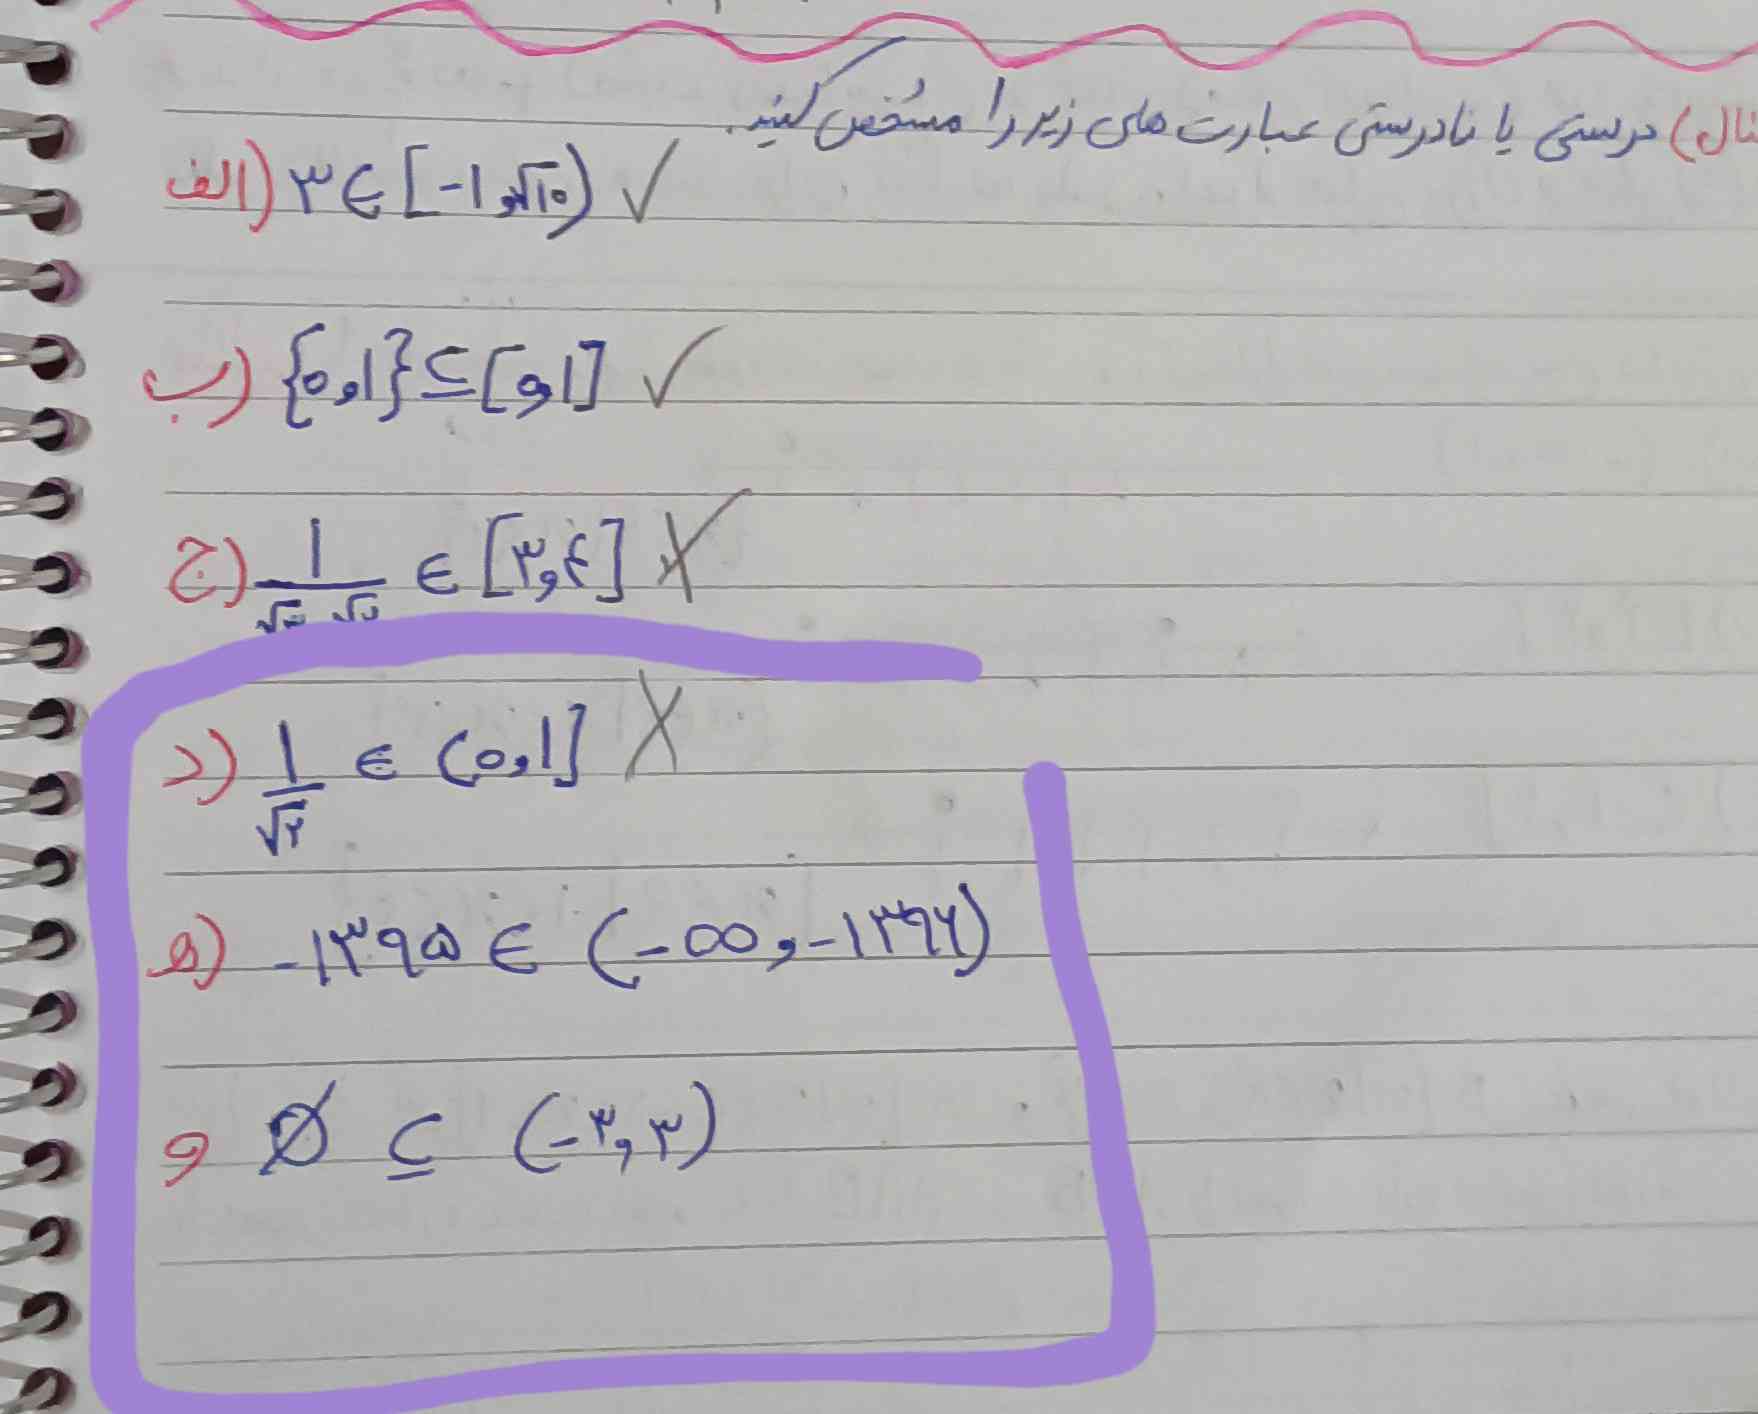 مثال) درستی یا نادرستی عبارت های زیر را مشخص کنید.
الف) ۳ ∈ [-۱, √۱۰) ✓
ب) {۰,۱} ⊆ [۰,۱] ✓
ج) ۱ / ∈ [۳,۴]
د) ۱/√۲ ∈ (۰,۱] X
ه) -۱۳۹۵ ∈ (-∞, -۱۳۹۶)
و ∅ ⊆ (-۳,۳)